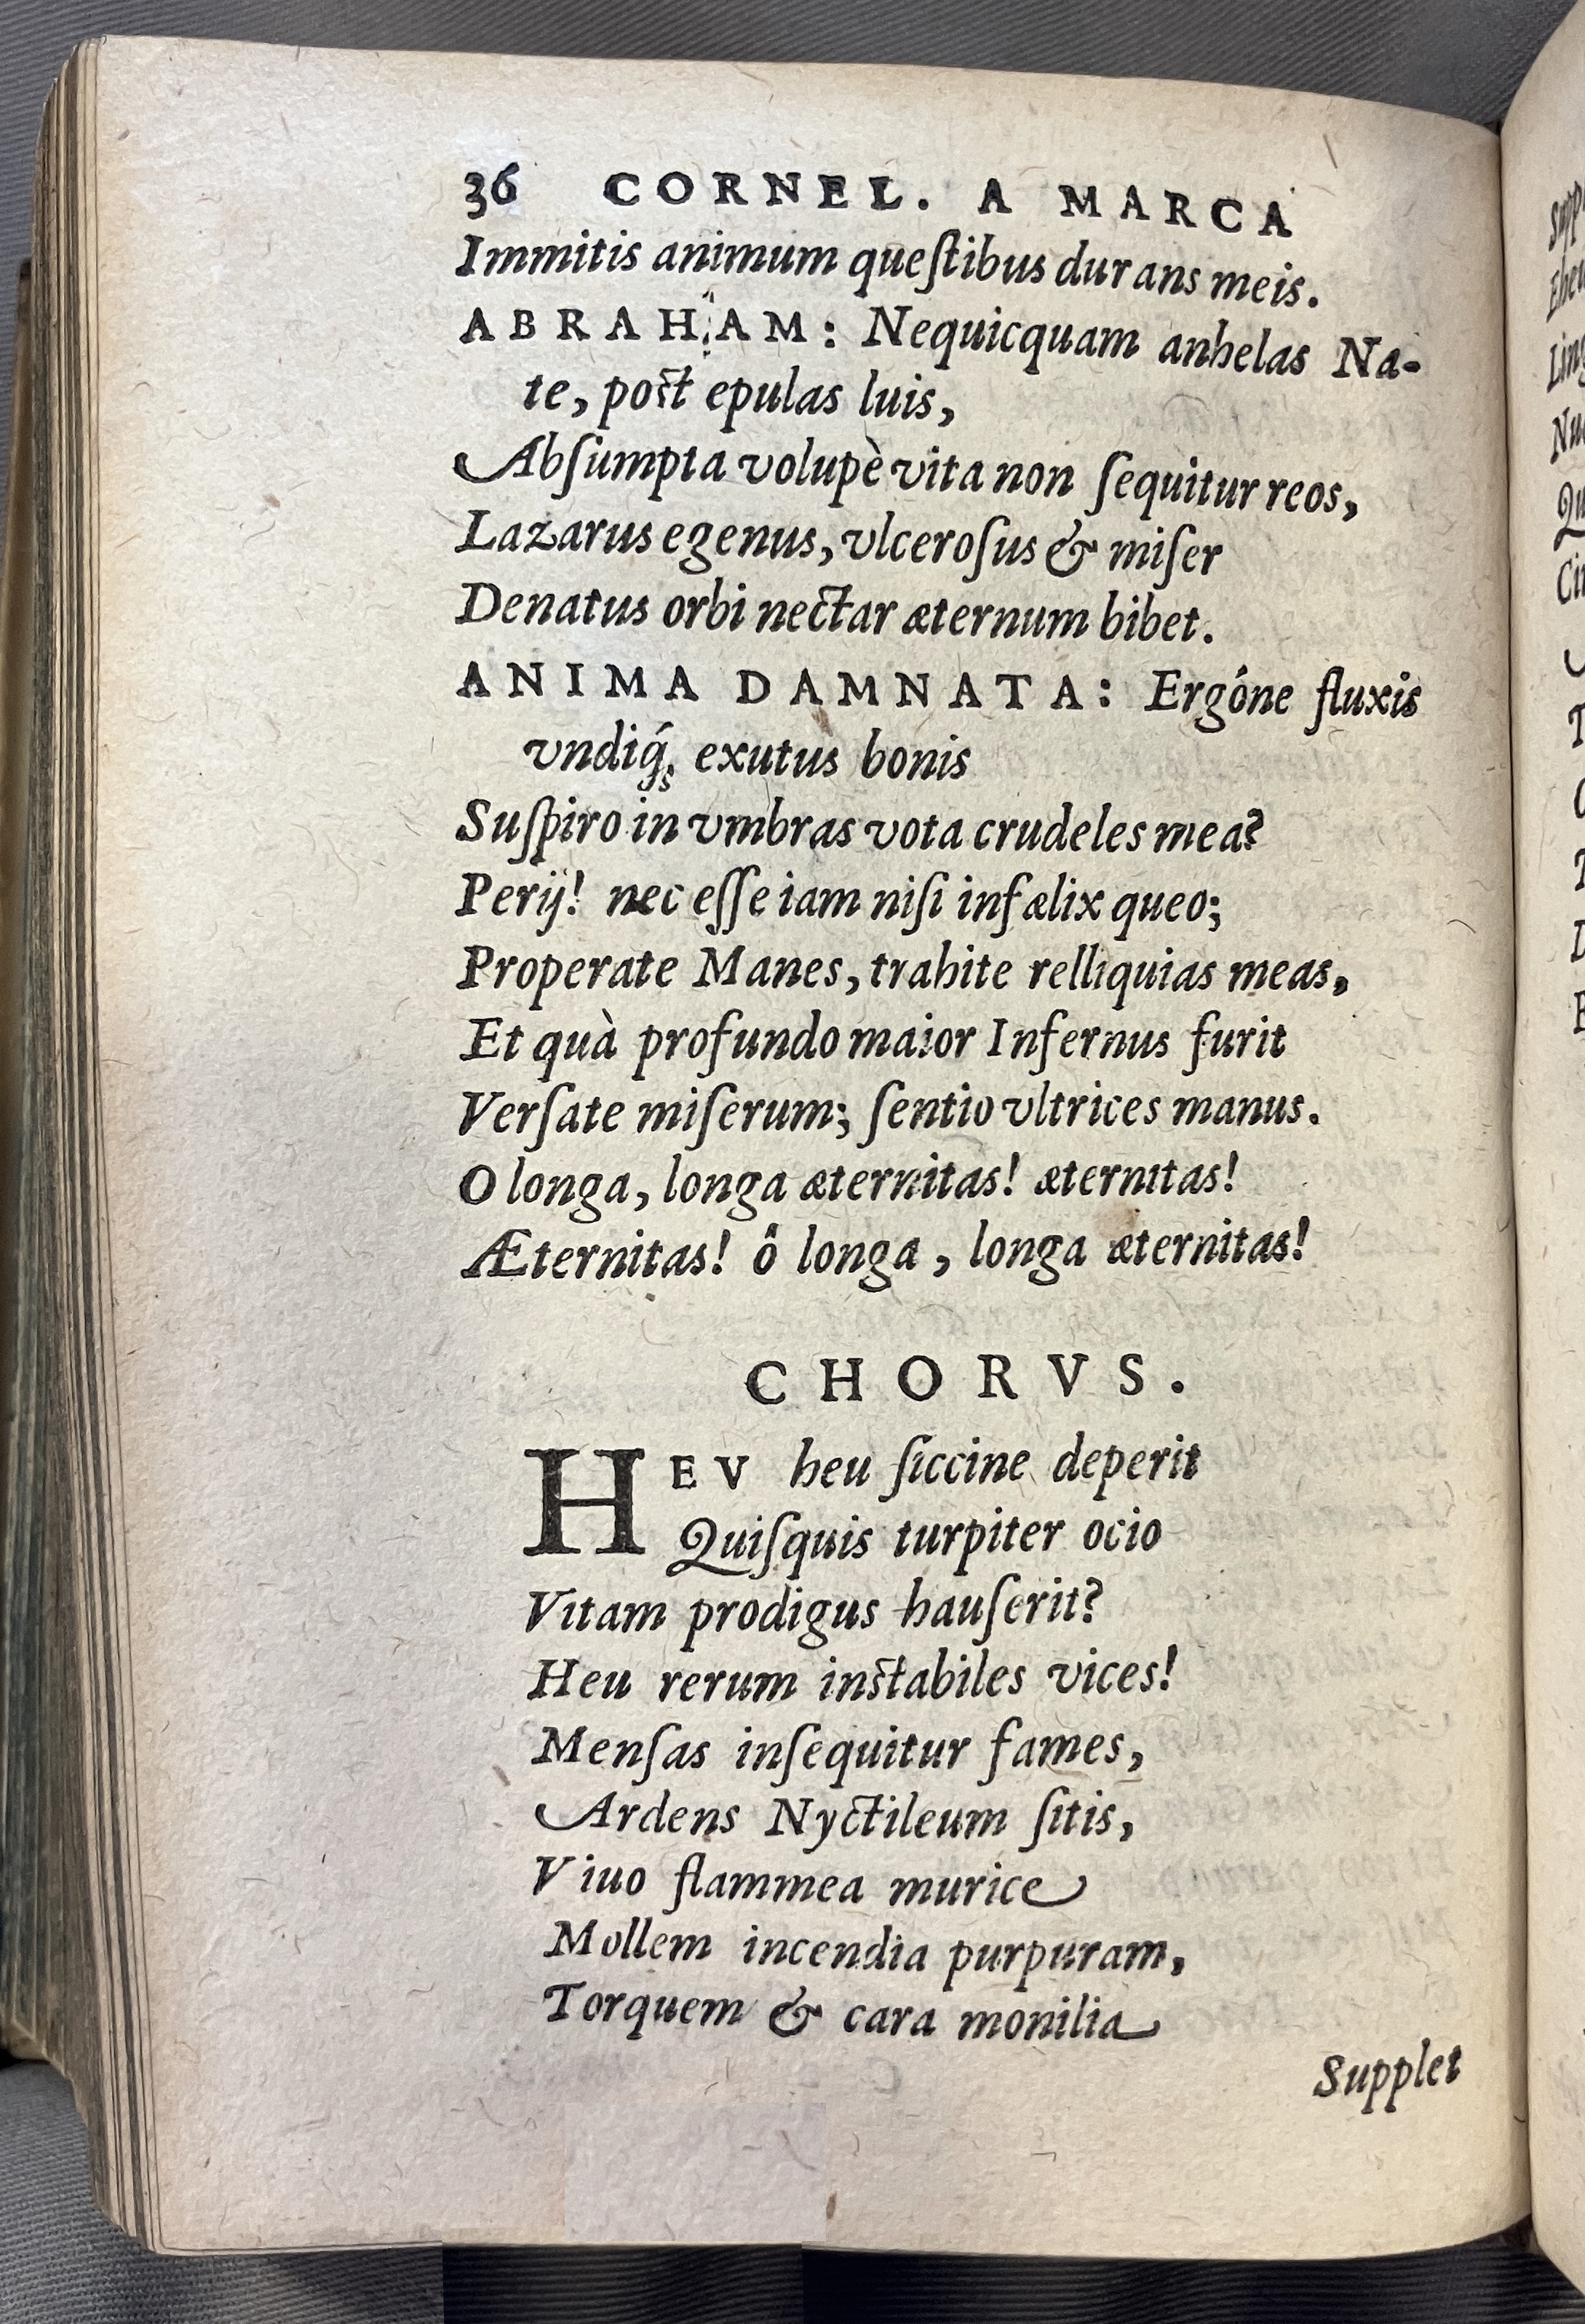 36 CORNEL. A MARCA
Immitis animum queſtibus durans meis.
ABRAHAM: Nequicquam anhelas Na-
te, poſt epulas luis,
Abſumpta volupè vita non ſequitur reos,
Lazarus egenus, vlceroſus & miſer
Denatus orbi nectar æternum bibet.
ANIMA DAMNATA: Ergóne fluxis
vndiq́; exutus bonis
Suſpiro in vmbras vota crudeles mea?
Perij! nec eſſe iam niſi infælix queo;
Properate Manes, trahite relliquias meas,
Et quà profundo maior Infernus furit
Verſate miſerum; ſentio vltrices manus.
O longa, longa æternitas! æternitas!
Æternitas! ô longa, longa æternitas!
CHORVS.
HEV heu ſiccine deperit
Quiſquis turpiter ocio
Vitam prodigus hauſerit?
Heu rerum inſtabiles vices!
Menſas inſequitur fames,
Ardens Nyctileum ſitis,
Viuo flammea murice
Mollem incendia purpuram,
Torquem & cara monilia
Supplet